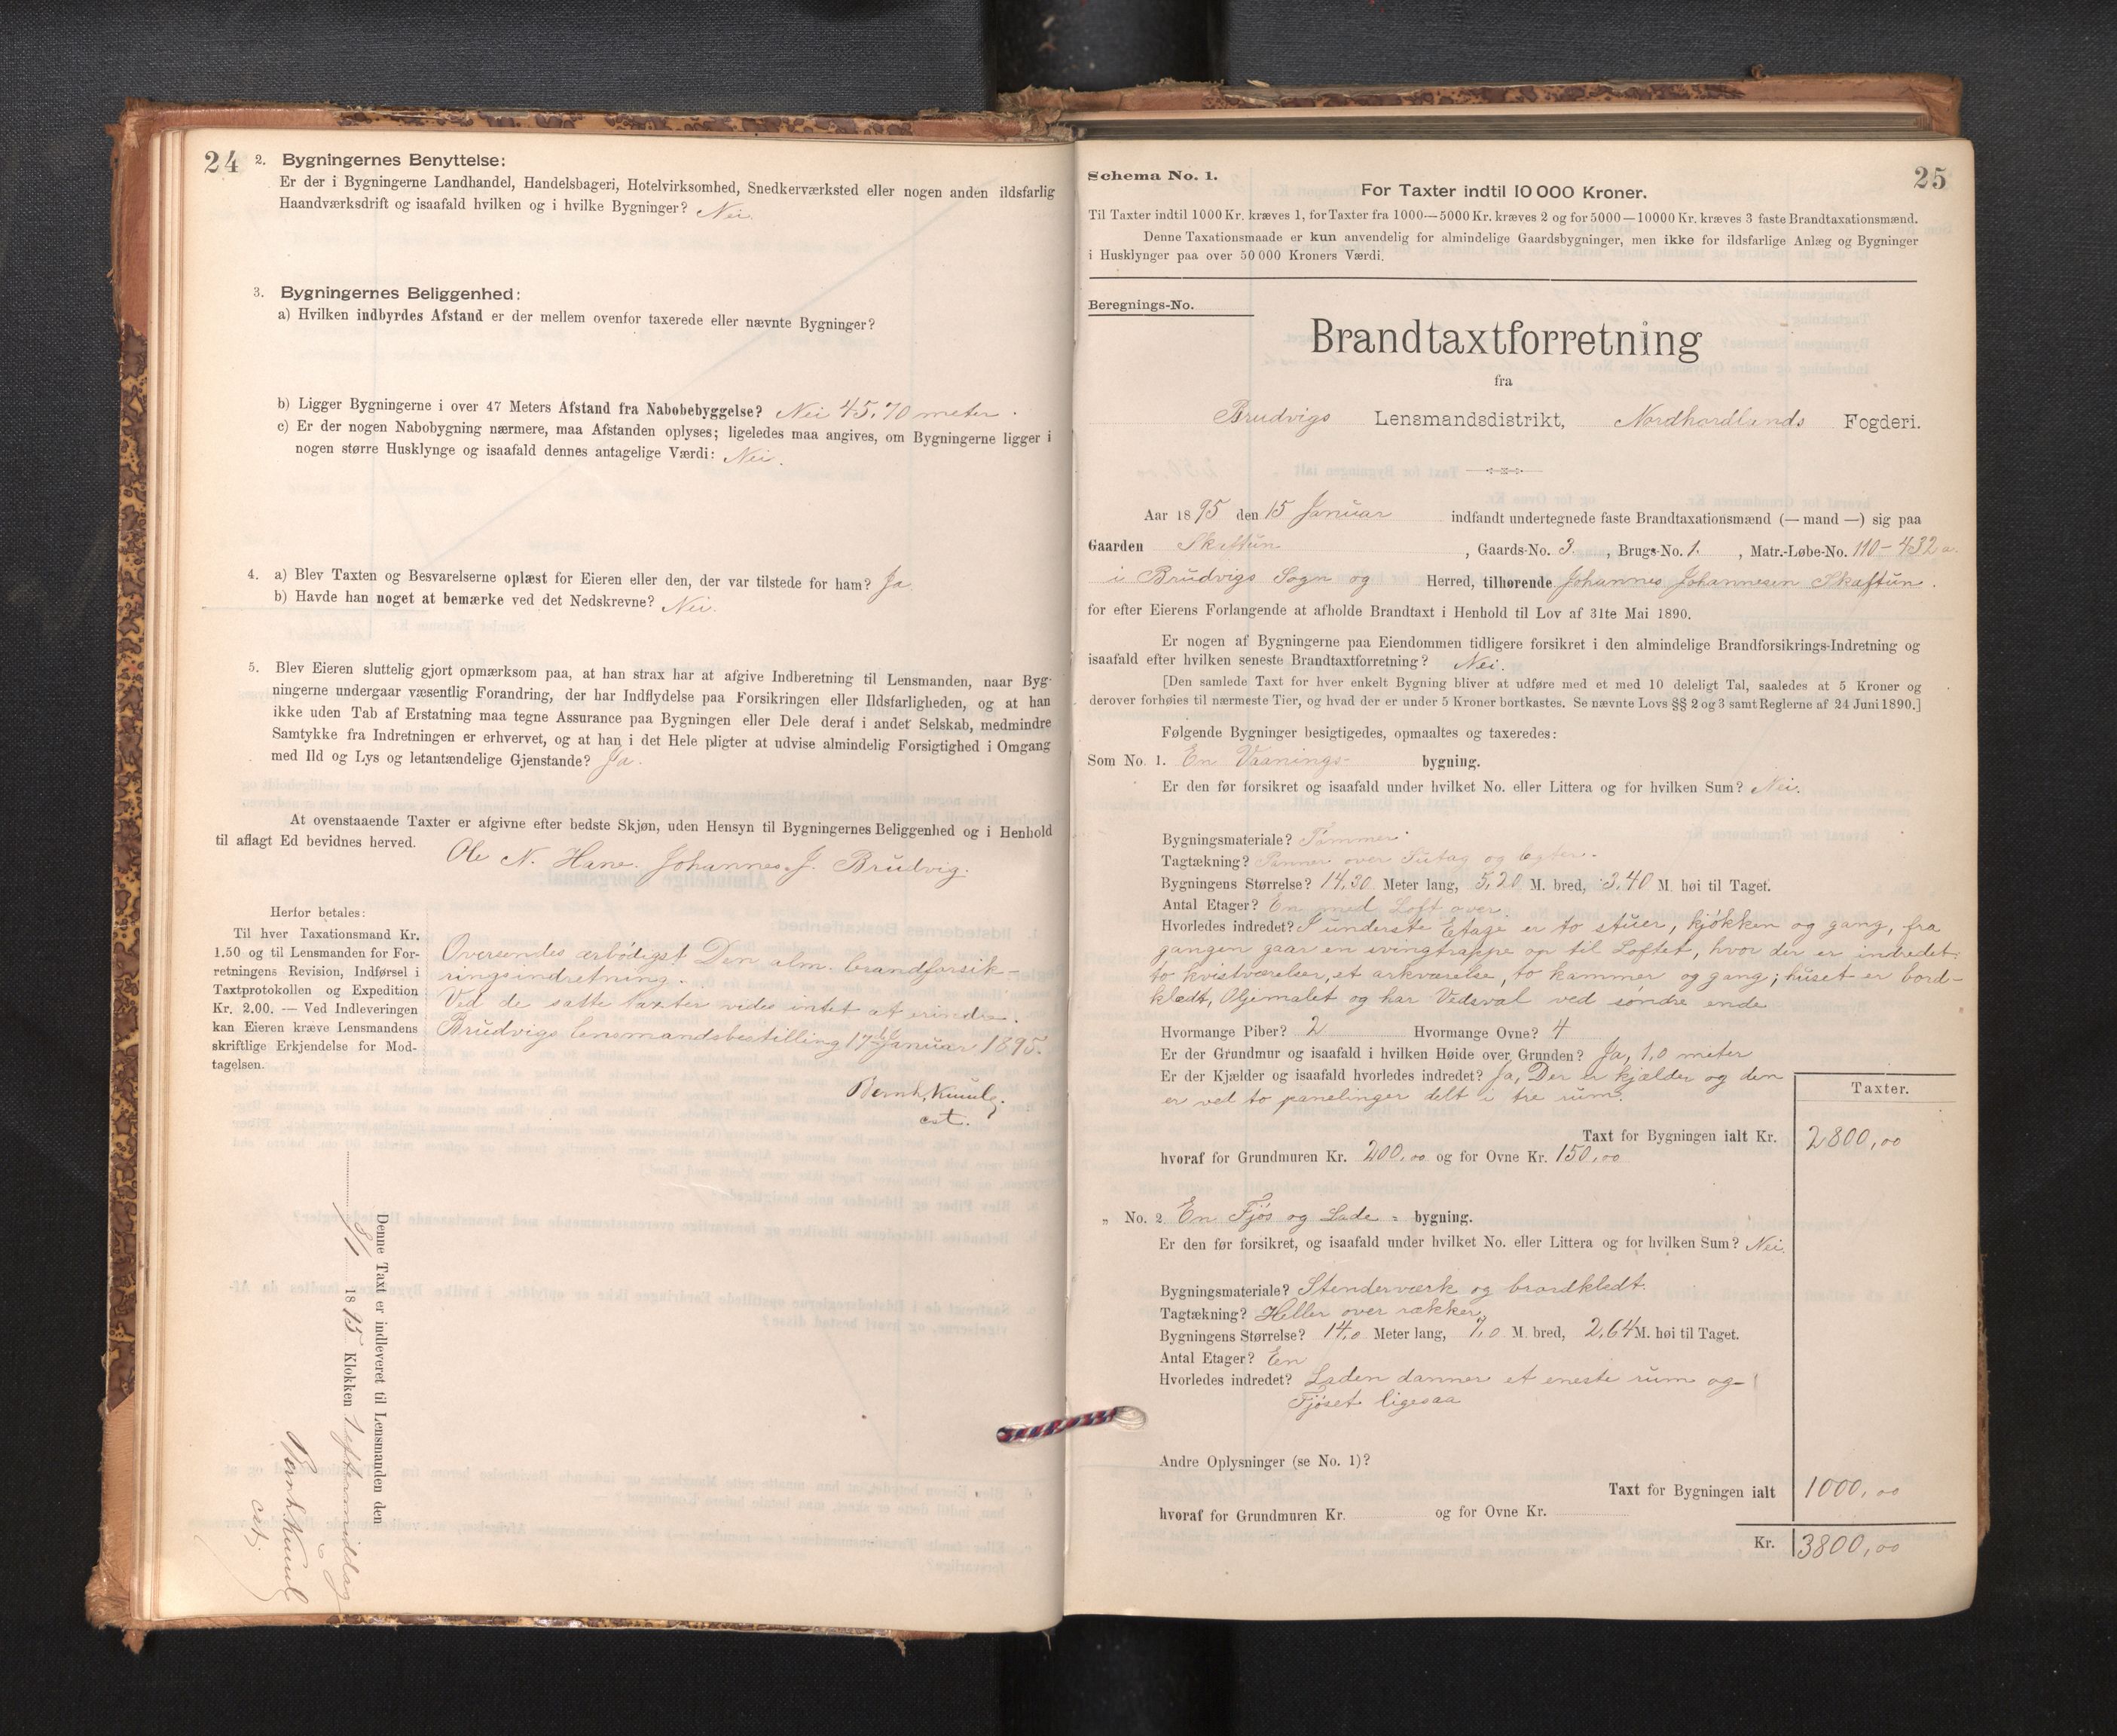 24
2. Bygningernes Benyttelse:
Er der i Bygningerne Landhandel, Handelsbageri, Hotelvirksomhed, Snedkerværksted eller nogen anden ildsfarlig
Haandværksdrift og isaafald hvilken og i hvilke Bygninger? Nei.
3. Bygningernes Beliggenhed:
a) Hvilken indbyrdes Afstand er der mellem ovenfor taxerede eller nævnte Bygninger?
b) Ligger Bygningerne i over 47 Meters Afstand fra Nabobebyggelse? Nei 45,70 meter.
c) Er der nogen Nabobygning nærmere, maa Afstanden oplyses; ligeledes maa angives, om Bygningerne ligger i
nogen større Husklynge og isaafald dennes antagelige Værdi: Nei.
4. a) Blev Taxten og Besvarelserne oplæst for Eieren eller den, der var tilstede for ham? Ja
b) Havde han noget at bemærke ved det Nedskrevne? Nei.
5. Blev Eieren sluttelig gjort opmærksom paa, at han strax har at afgive Indberetning til Lensmanden, naar Byg-
ningerne undergaar væsentlig Forandring, der har Indflydelse paa Forsikringen eller Ildsfarligheden, og at han
ikke uden Tab af Erstatning maa tegne Assurance paa Bygningen eller Dele deraf i andet Selskab, medmindre
Samtykke fra Indretningen er erhvervet, og at han i det Hele pligter at udvise almindelig Forsigtighed i Omgang
med Ild og Lys og letantændelige Gjenstande? Ja.
At ovenstaaende Taxter er afgivne efter bedste Skjøn, uden Hensyn til Bygningernes Beliggenhed og i Henhold
til aflagt Ed bevidnes herved.
Ole N. Hane. Johannes J. Brudvig.
Herfor betales:
Til hver Taxationsmand Kr.
1.50 og til Lensmanden for For-
retningens Revision, Indførsel i
Taxtprotokollen og Expedition
Kr. 2.00. — Ved Indleveringen
kan Eieren kræve Lensmandens
skriftlige Erkjendelse for Mod-
tagelsen.
Oversendes ærbødigst Den alm. brandforsik-
ringsindretning.
Ved de satte taxter vides intet at erindre.
Brudvigs lensmandsbestilling 17de Januar 1895.
Bernh.
cst.
Denne Taxt er indleveret til Lensmanden den
1895 Klokken 1 eftermiddag
Bernh.
cst.
25
Schema No. 1.
For Taxter indtil 10 000 Kroner.
Til Taxter indtil 1000 Kr. kræves 1, for Taxter fra 1000—5000 Kr. kræves 2 og for 5000—10000 Kr. kræves 3 faste Brandtaxationsmænd.
Denne Taxationsmaade er kun anvendelig for almindelige Gaardsbygninger, men ikke for ildsfarlige Anlæg og Bygninger
i Husklynger paa over 50 000 Kroners Værdi.
Beregnings-No.
Brandtaxtforretning
fra
Brudvigs Lensmandsdistrikt, Nordhordlands Fogderi.
Aar 1895 den 15 Januar indfandt undertegnede faste Brandtaxationsmænd (— mand —) sig paa
Gaarden Skaftun, Gaards-No. 3, Brugs-No. 1., Matr.-Løbe-No. 110-432a.
i Brudvigs Sogn og Herred, tilhørende Johannes Johannesen Skaftun.
for efter Eierens Forlangende at afholde Brandtaxt i Henhold til Lov af 31te Mai 1890.
Er nogen af Bygningerne paa Eiendommen tidligere forsikret i den almindelige Brandforsikrings-Indretning og
isaafald efter hvilken seneste Brandtaxtforretning? Nei.
[Den samlede Taxt for hver enkelt Bygning bliver at udføre med et med 10 deleligt Tal, saaledes at 5 Kroner og
derover forhøies til nærmeste Tier, og hvad der er under 5 Kroner bortkastes. Se nævnte Lovs §§ 2 og 3 samt Reglerne af 24 Juni 1890.]
Følgende Bygninger besigtigedes, opmaaltes og taxeredes:
Som No. 1. En Vaanings- bygning.
Er den før forsikret og isaafald under hvilket No. eller Littera og for hvilken Sum? Nei.
Bygningsmateriale? Tømmer
Tagtækning? Panner over Sutag og legter.
Bygningens Størrelse? 14,30 Meter lang, 5,20 M. bred, 3,40 M. høi til Taget.
Antal Etager? En med Loft over.
Hvorledes indredet? I underste Etage er to stuer, kjøkken og gang, fra
gangen gaar en svingtrappe op til Loftet, hvor der er indredet:
to kvistværelser, et arkværelse, to kammer og gang; huset er bord-
klædt, Oljemalet og har Vedsval ved søndre ende
Hvormange Piber? 2 Hvormange Ovne? 4
Er der Grundmur og isaafald i hvilken Høide over Grunden? Ja, 1,0 meter
Er der Kjælder og isaafald hvorledes indredet? Ja, Der er kjælder og den
er ved to panelinger delt i tre rum.
Taxter.
Taxt for Bygningen ialt Kr. 2800,00
hvoraf for Grundmuren Kr. 200,00 og for Ovne Kr. 150,00
„ No. 2. En Fjøs og Lade - bygning.
Er den før forsikret, og isaafald under hvilket No. eller Littera og for hvilken Sum? Nei.
Bygningsmateriale? Stenderværk og brordklædt.
Tagtækning? Heller over rækker
Bygningens Størrelse? 14,0 Meter lang, 7,0 M. bred, 2,64 M. høi til Taget.
Antal Etager? En
Hvorledes indredet? Laden danner et eneste rum og
Fjøset ligesaa
Andre Oplysninger (se No. 1)?
Taxt for Bygningen ialt 1000,00
hvoraf for Grundmuren Kr. og for Ovne Kr.
Kr. 3800,00